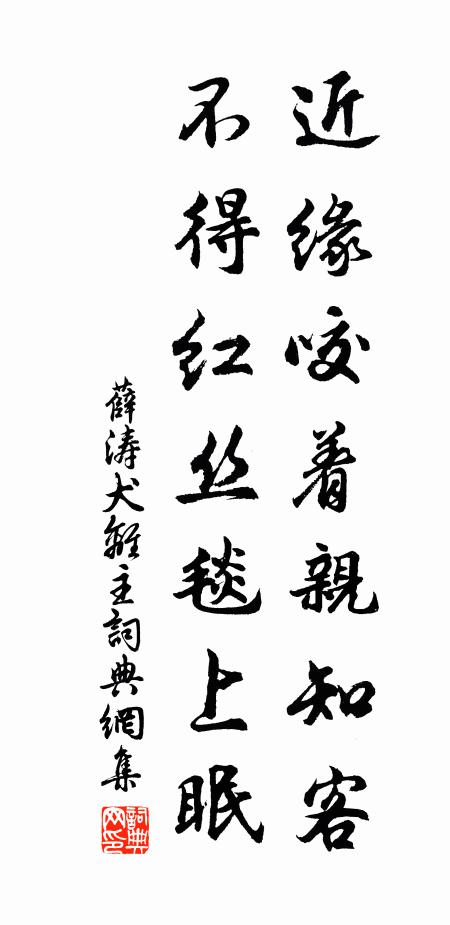 近缘咬着親知客
不得红丝毯上眠
薛涛犬離主詞典網集
詞典
网印